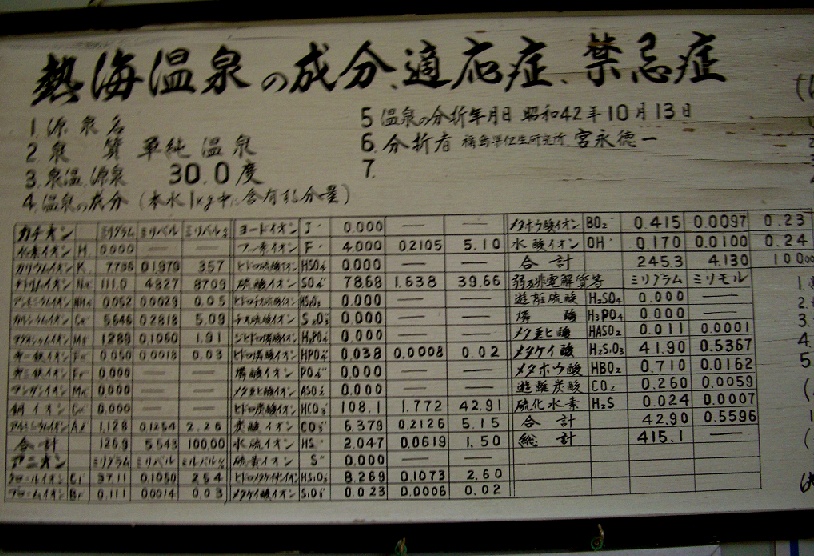 熱海温泉の成分、適応症、禁忌症
1 源泉名
2 泉質 単純温泉
3. 泉温.源泉 30.0度
4. 温泉の成分 (本水1kg中に含有する分量)
5 温泉の分析年月日 昭和42年10月13日
6. 分析者 宮永徳一
7.
カチオン ミリグラム ミリバル ミリバル%
水素イオン H 0.000 — —
カリウムイオン K
ナトリウムイオン Na 111.0 4.827 87.09
アンモニウムイオン NH4 0.052 0.0029 0.05
カルシウムイオン Ca 5.646 0.2818 5.09
マグネシウムイオン Mg 1.289 0.1060 1.91
0.050 0.0018 0.03
0.000 — —
マンガンイオン Mn 0.000 — —
銅イオン Cu 0.000 — —
アルミニウムイオン Al 1.128 0.1254 2.26
合計 5.543 100.00
アニオン ミリグラム ミリバル ミリバル%
クロールイオン Cl 37.11 1.050 25.4
ブロームイオン Br 0.111 0.0014 0.03
ヨードイオン J 0.000 — —
フッ素イオン F 4.000 0.2105 5.10
HSO4 0.000 — —
硫酸イオン SO4 78.68 1.638 39.66
0.000 — —
チオ硫酸イオン S2O3 0.000 — —
H2PO4 0.000 — —
ヒドロ燐酸イオン HPO4 0.038 0.0008 0.02
燐酸イオン PO4 0.000 — —
メタ亜ヒ酸イオン ASO2 0.000 — —
ヒドロ炭酸イオン HCO3 108.1 1.772 42.91
炭酸イオン CO3 6.379 0.2126 5.15
水硫イオン HS 2.047 0.0619 1.50
硫黄イオン S 0.000 — —
8.269 0.1073 2.60
メタケイ酸イオン SiO3 0.023 0.0006 0.02
メタホウ酸イオン BO2 0.415 0.0097 0.23
水酸イオン OH 0.170 0.0100 0.24
合計 245.3 4.130 100.00
ミリグラム ミリモル
遊離硫酸 H2SO4 0.000 —
燐酸 H3PO4 0.000 —
メタ亜ヒ酸 HASO2 0.011 0.0001
メタケイ酸 H2SiO3 41.90 0.5367
メタホウ酸 HBO2 0.710 0.0162
遊離炭酸 CO2 0.260 0.0059
硫化水素 H2S 0.024 0.0007
合計 42.90 0.5596
総計 415.1 —